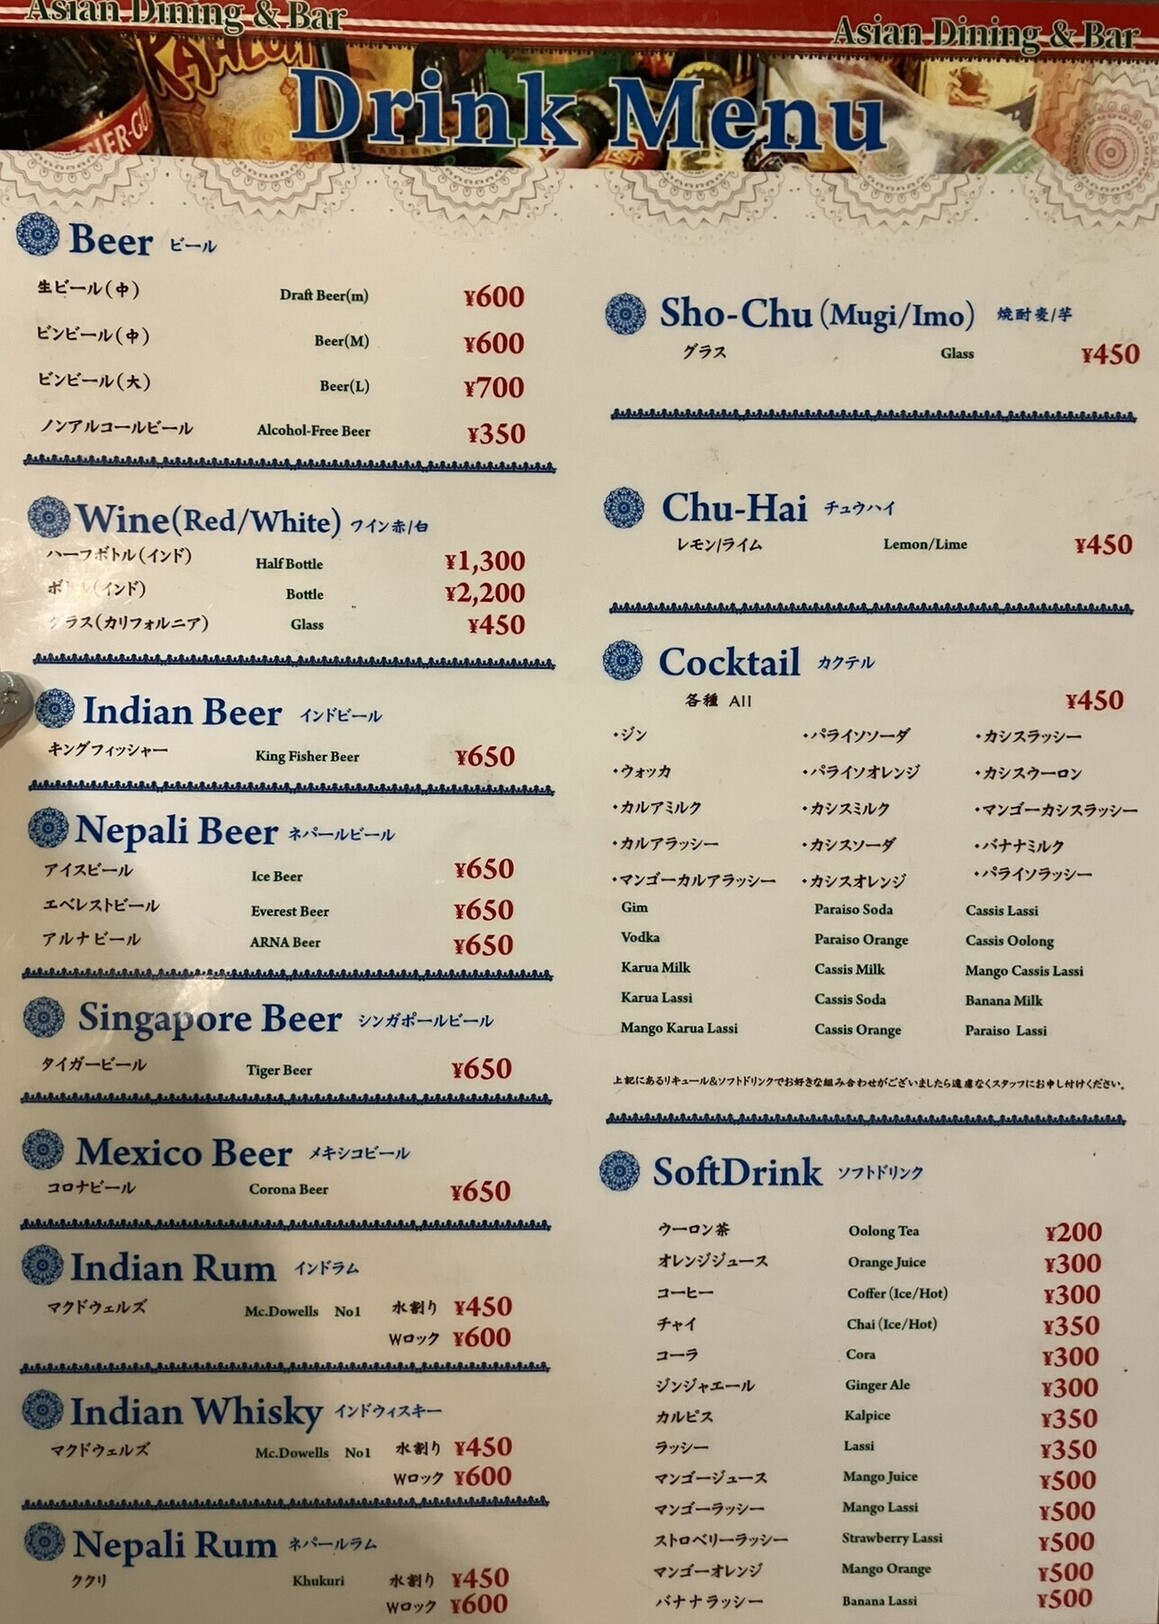 Asian Dining & Bar
Asian Dining & Bar
KAHLUA
Drink Menu
Beer ビール
生ビール(中) Draft Beer(m) ¥600
ビンビール(中) Beer(M) ¥600
ビンビール(大) Beer(L) ¥700
ノンアルコールビール Alcohol-Free Beer ¥350
Wine(Red/White) ワイン赤/白
ハーフボトル(インド) Half Bottle ¥1,300
ボトル(インド) Bottle ¥2,200
グラス(カリフォルニア) Glass ¥450
Indian Beer インドビール
キングフィッシャー King Fisher Beer ¥650
Nepali Beer ネパールビール
アイスビール Ice Beer ¥650
エベレストビール Everest Beer ¥650
アルナビール ARNA Beer ¥650
Singapore Beer シンガポールビール
タイガービール Tiger Beer ¥650
Mexico Beer メキシコビール
コロナビール Corona Beer ¥650
Indian Rum インドラム
マクドウェルズ Mc.Dowells No1 水割り ¥450
Wロック ¥600
Indian Whisky インドウィスキー
マクドウェルズ Mc.Dowells No1 水割り ¥450
Wロック ¥600
Nepali Rum ネパールラム
ククリ Khukuri 水割り ¥450
Wロック ¥600
Sho-Chu (Mugi/Imo) 焼酎麦/芋
グラス Glass ¥450
Chu-Hai チュウハイ
レモン/ライム Lemon/Lime ¥450
Cocktail カクテル
各種 All ¥450
・ジン ・パライソソーダ ・カシスラッシー
・ウォッカ ・パライソオレンジ ・カシスウーロン
・カルアミルク ・カシスミルク ・マンゴーカシスラッシー
・カルアラッシー ・カシスソーダ ・バナナミルク
・マンゴーカルアラッシー ・カシスオレンジ ・パライソラッシー
Gim Paraiso Soda Cassis Lassi
Vodka Paraiso Orange Cassis Oolong
Karua Milk Cassis Milk Mango Cassis Lassi
Karua Lassi Cassis Soda Banana Milk
Mango Karua Lassi Cassis Orange Paraiso Lassi
上記にあるリキュール&ソフトドリンクでお好きな組み合わせがございましたら遠慮なくスタッフにお申し付けください。
SoftDrink ソフトドリンク
ウーロン茶 Oolong Tea ¥200
オレンジジュース Orange Juice ¥300
コーヒー Coffer (Ice/Hot) ¥300
チャイ Chai (Ice/Hot) ¥350
コーラ Cora ¥300
ジンジャエール Ginger Ale ¥300
カルピス Kalpice ¥350
ラッシー Lassi ¥350
マンゴージュース Mango Juice ¥500
マンゴーラッシー Mango Lassi ¥500
ストロベリーラッシー Strawberry Lassi ¥500
マンゴーオレンジ Mango Orange ¥500
バナナラッシー Banana Lassi ¥500